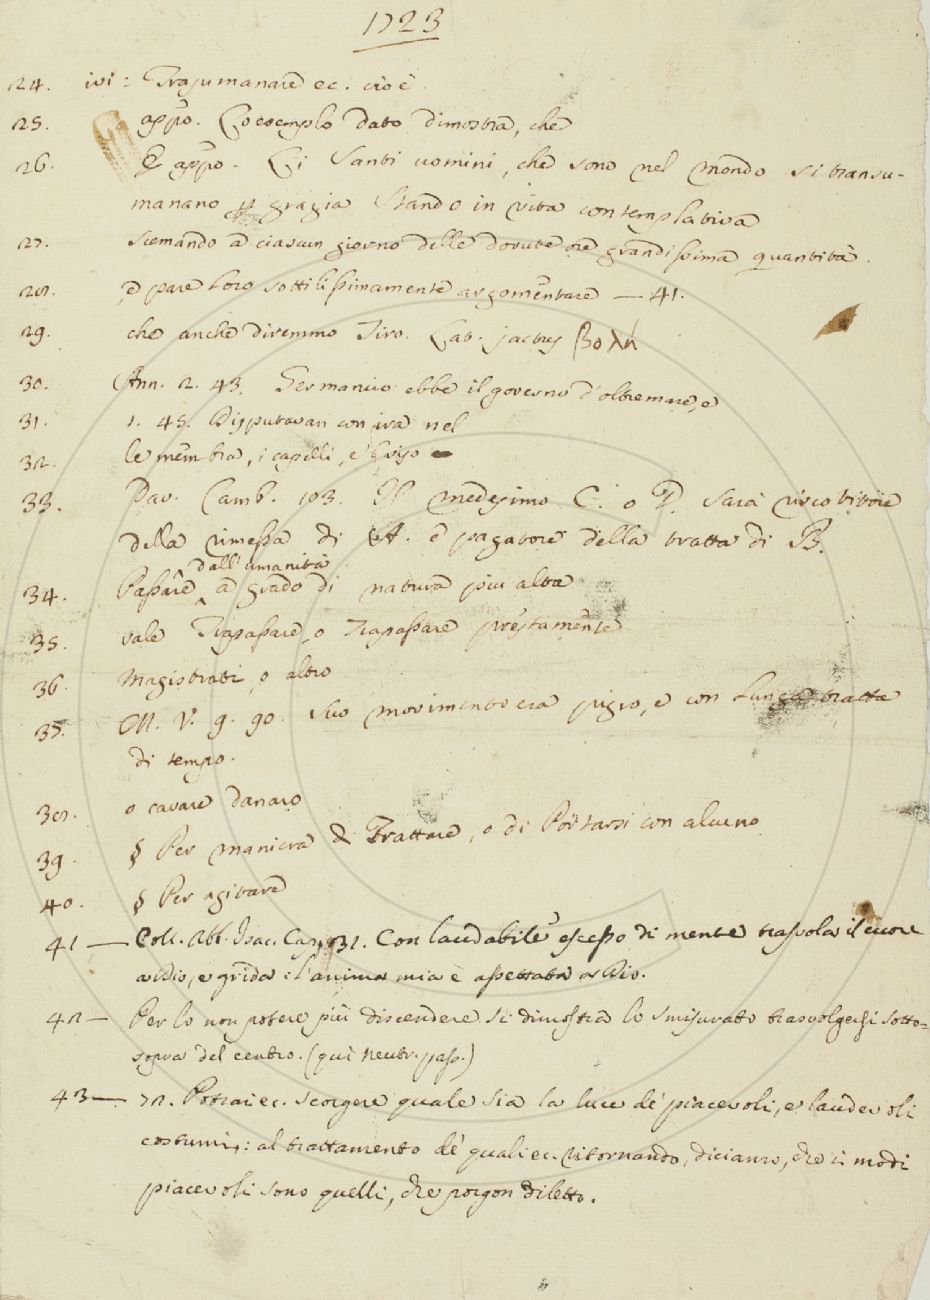 1723
24. ivi: Trasumanare ec. cioè
25. appo. L'esemplo dato dimostra, che
26. E appo. Li Santi uomini, che sono nel mondo si transu-
manano p grazia stando in vita contemplativa
27. scemando a ciascun giorno delle dovute ore grandissima quantità.
28. e pare loro sottilissimamente argomentare — 41.
29. che anche diremmo Tiro. Lat. jactus βολή
30. Ann. 2. 43. Germanico ebbe il governo d'oltremare, e
31. 1. 45. Disputavan con ira nel
32. le membra, i capelli, e'l viso
33. Dav. Camb. 103. Il medesimo C. o D. sarà riscotitore
della rimessa di A. e pagatore della tratta di B.
34. Passare dall'umanità a grado di natura più alta
35. vale Trapassare, o Trapassare prestamente
36. Magistrati, o altro
37. M. V. 9. 90. suo movimento era pigro, e con lunga tratta
di tempo.
38. o cavare danaro
39. § Per maniera di Trattare, o di Portarsi con alcuno
40. § Per agitare
41 — Coll. Abt. Isac. Cap. 31. Con laudabile escesso di mente trasvola il cuore
a Dio, e grida: l'anima mia è aspettata a Dio.
42 — Per lo non potere più discendere si dimostra lo smisurato trasvolgersi sotto=
sopra del centro. (qui neutr. pass.)
43 — 72. Potrai ec. scorgere quale sia la luce de' piacevoli, e laudevoli
costumi: al trattamento de' quali ec. ritornando, diciamo, che i modi
piacevoli sono quelli, che porgon diletto.